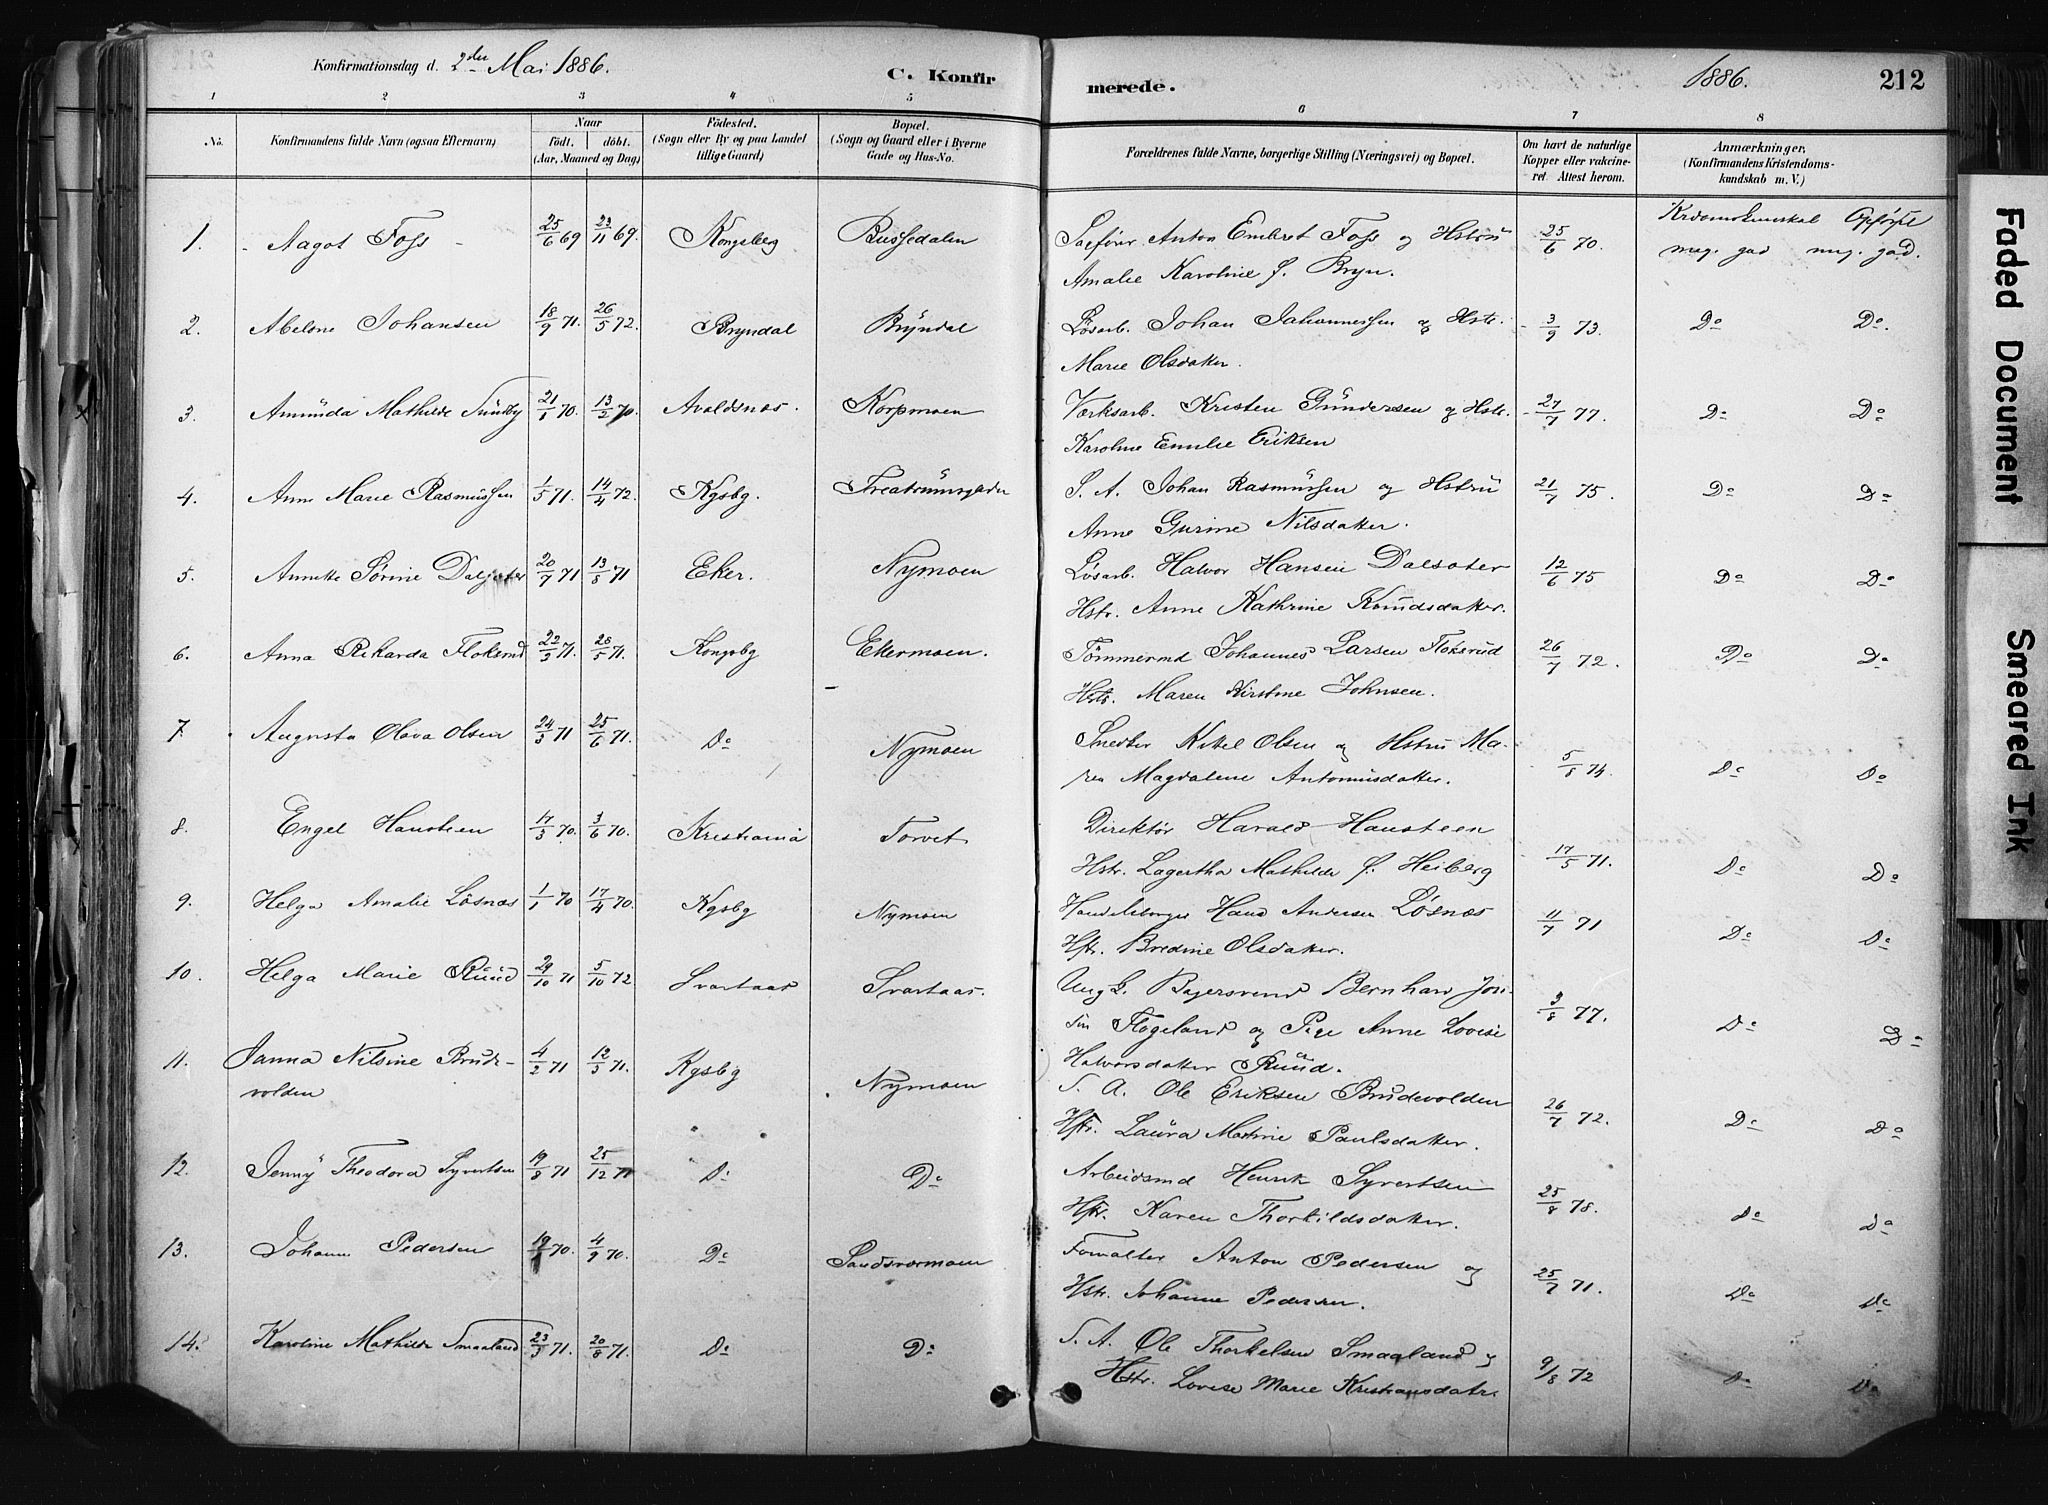 Konfirmationsdag d. 2den Mai 1886. C. Konfirmerede. 1886. 212
1 2 3 4 5 6 7 8
No. Konfirmandens fulde Navn (ogsaa Efternavn) Naar født. døbt. (Aar, Maaned og Dag) Fødested. (Sogn eller By og paa Landet tillige Gaard) Bopæl. (Sogn og Gaard eller i Byerne Gade og Hus-No. Forældrenes fulde Navne, borgerlige Stilling (Næringsvei) og Bopæl. Om havt de naturlige Kopper eller vakcineret. Attest herom. Anmærkninger, (Konfirmandens Kristendomskundskab m. V.)
1. Aagot Foss 25/6 69 23/11 69. Kongsberg Bussedalen Anton Embret Foss og Hstru 25/6 70. Opførsel
Amalie Karoline f. Bryn. meg. god meg. god.
2. Abelone Johansen 18/9 71. 26/5 72. Bryndal Bryndal Løsarb. Johan Johannessen og Hstr. 3/9 73. Do Do.
Marie Olsdatter.
3. Amunda Mathilde Sundby 21/1 70. 13/2 70. Avaldsnæs. Korpmoen Værksarb. Kristen Gundersen og Hstr. 27/7 77. Do Do
Karoline Emilie Eriksen
4. Anne Marie Rasmussen 1/5 71. 14/4 72. Kgsbg. S. A. Johan Rasmussen og Hstru 21/7 75. Do Do
Anne Gurine Nilsdatter.
5. Annette Sørine Dalseter 20/7 71 13/8 71 Eker. Nymoen Løsarb. Halvor Hansen Dalsæter 12/6 75 Do Do
Hstr. Anne Kathrine Knudsdatter.
6. Anna Rikarda Floksrud 22/3 71. 28/5 71. Kongsbg Ekermoen. Tømmermd Johannes Larsen Floksrud 26/7 72. Do Do
Hstr. Maren Kirstine Johnsen.
7. Augusta Olava Olsen 24/3 71 25/6 71. Do Nymoen Kittel Olsen og Hstru Ma-
ren Magdalene Antoniusdatter. 5/8 74. Do Do
8. Engel Hansteen 17/3 70. 3/6 70. Kristiania Torvet Direktør Harald Hansteen
Hstr. Lagertha Mathilde f. Heiberg 17/5 71. Do Do
9. Helga Amalie Løsnæs 1/1 70 17/4 70. Kgsbg Nymoen Hans Andersen Løsnæs 11/7 71 Do Do
Hstr. Bredine Olsdatter.
10. Helga Marie Ruud 29/10 71 5/10 72. Svartaas Svartaas. Ung k. Bagersvend Bernhard Jon-
sen Flogeland og Pige Anne Lovise 3/8 77. Do Do
Halvorsdatter Ruud.
11. Janna Nilsine Brude- 4/2 71 12/3 71. Kgsbg Nymoen S. A. Ole Eriksen Brudevolden
volden Hstr. Laura Martine Paulsdatter. 26/7 72. Do Do
12. Jenny Theodora Syvertsen 19/8 71 25/12 71 Do Do Arbeidsmd Henrik Syvertsen
Hstr. Karen Thorkildsdatter. 25/8 78. Do Do
13. Johanne Pedersen 19/1 70. 4/9 70. Do Sandsværmoen Forvalter Anton Pedersen og
Hstr. Johanne Pedersen. 25/7 71. Do Do
14. Karoline Mathilde Smaaland 23/3 71. 20/8 71. Do Do S. A. Ole Thorkelsen Smaaland og
Hstr. Lovise Marie Kristiansdatr. 9/8 72 Do Do
Faded Document
Smeared Ink